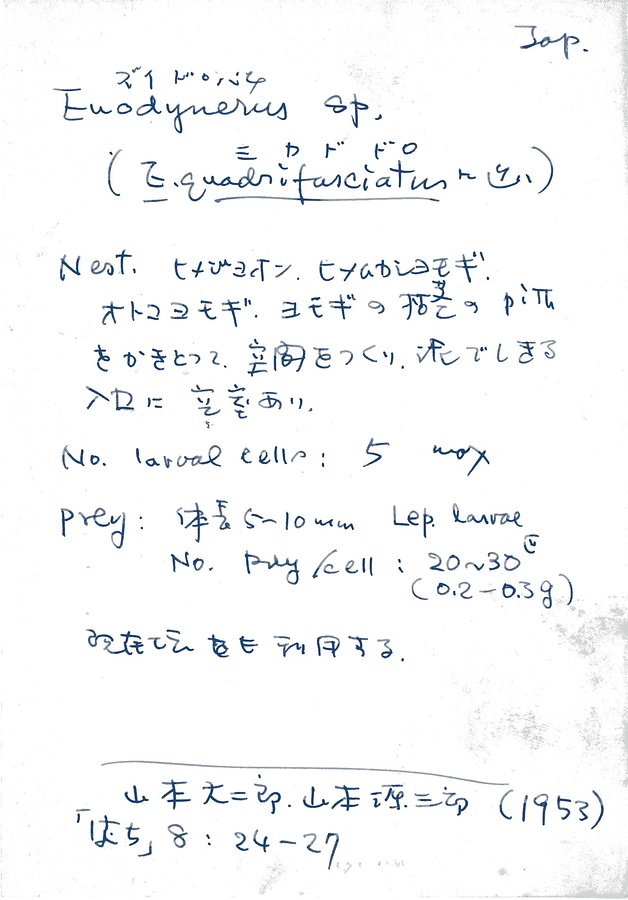 Jap.
ズイドロバチ
Euodynerus sp.
ミカドドロ
(E. quadrifasciatus に近い)
Nest. ヒメジョオン. ヒメムカシヨモギ.
オトコヨモギ. ヨモギの枯茎の pith
をかきとって. 空間をつくり. 泥でしきる
入口に 空室あり.
No. larval cells: 5 max
Prey: 体長 5〜10 mm Lep. larvae
No. Prey/cell: 20〜30
(0.2-0.3g)
をも利用する.
山本大二郎. 山本 三郎 (1953)
「はち」8: 24-27